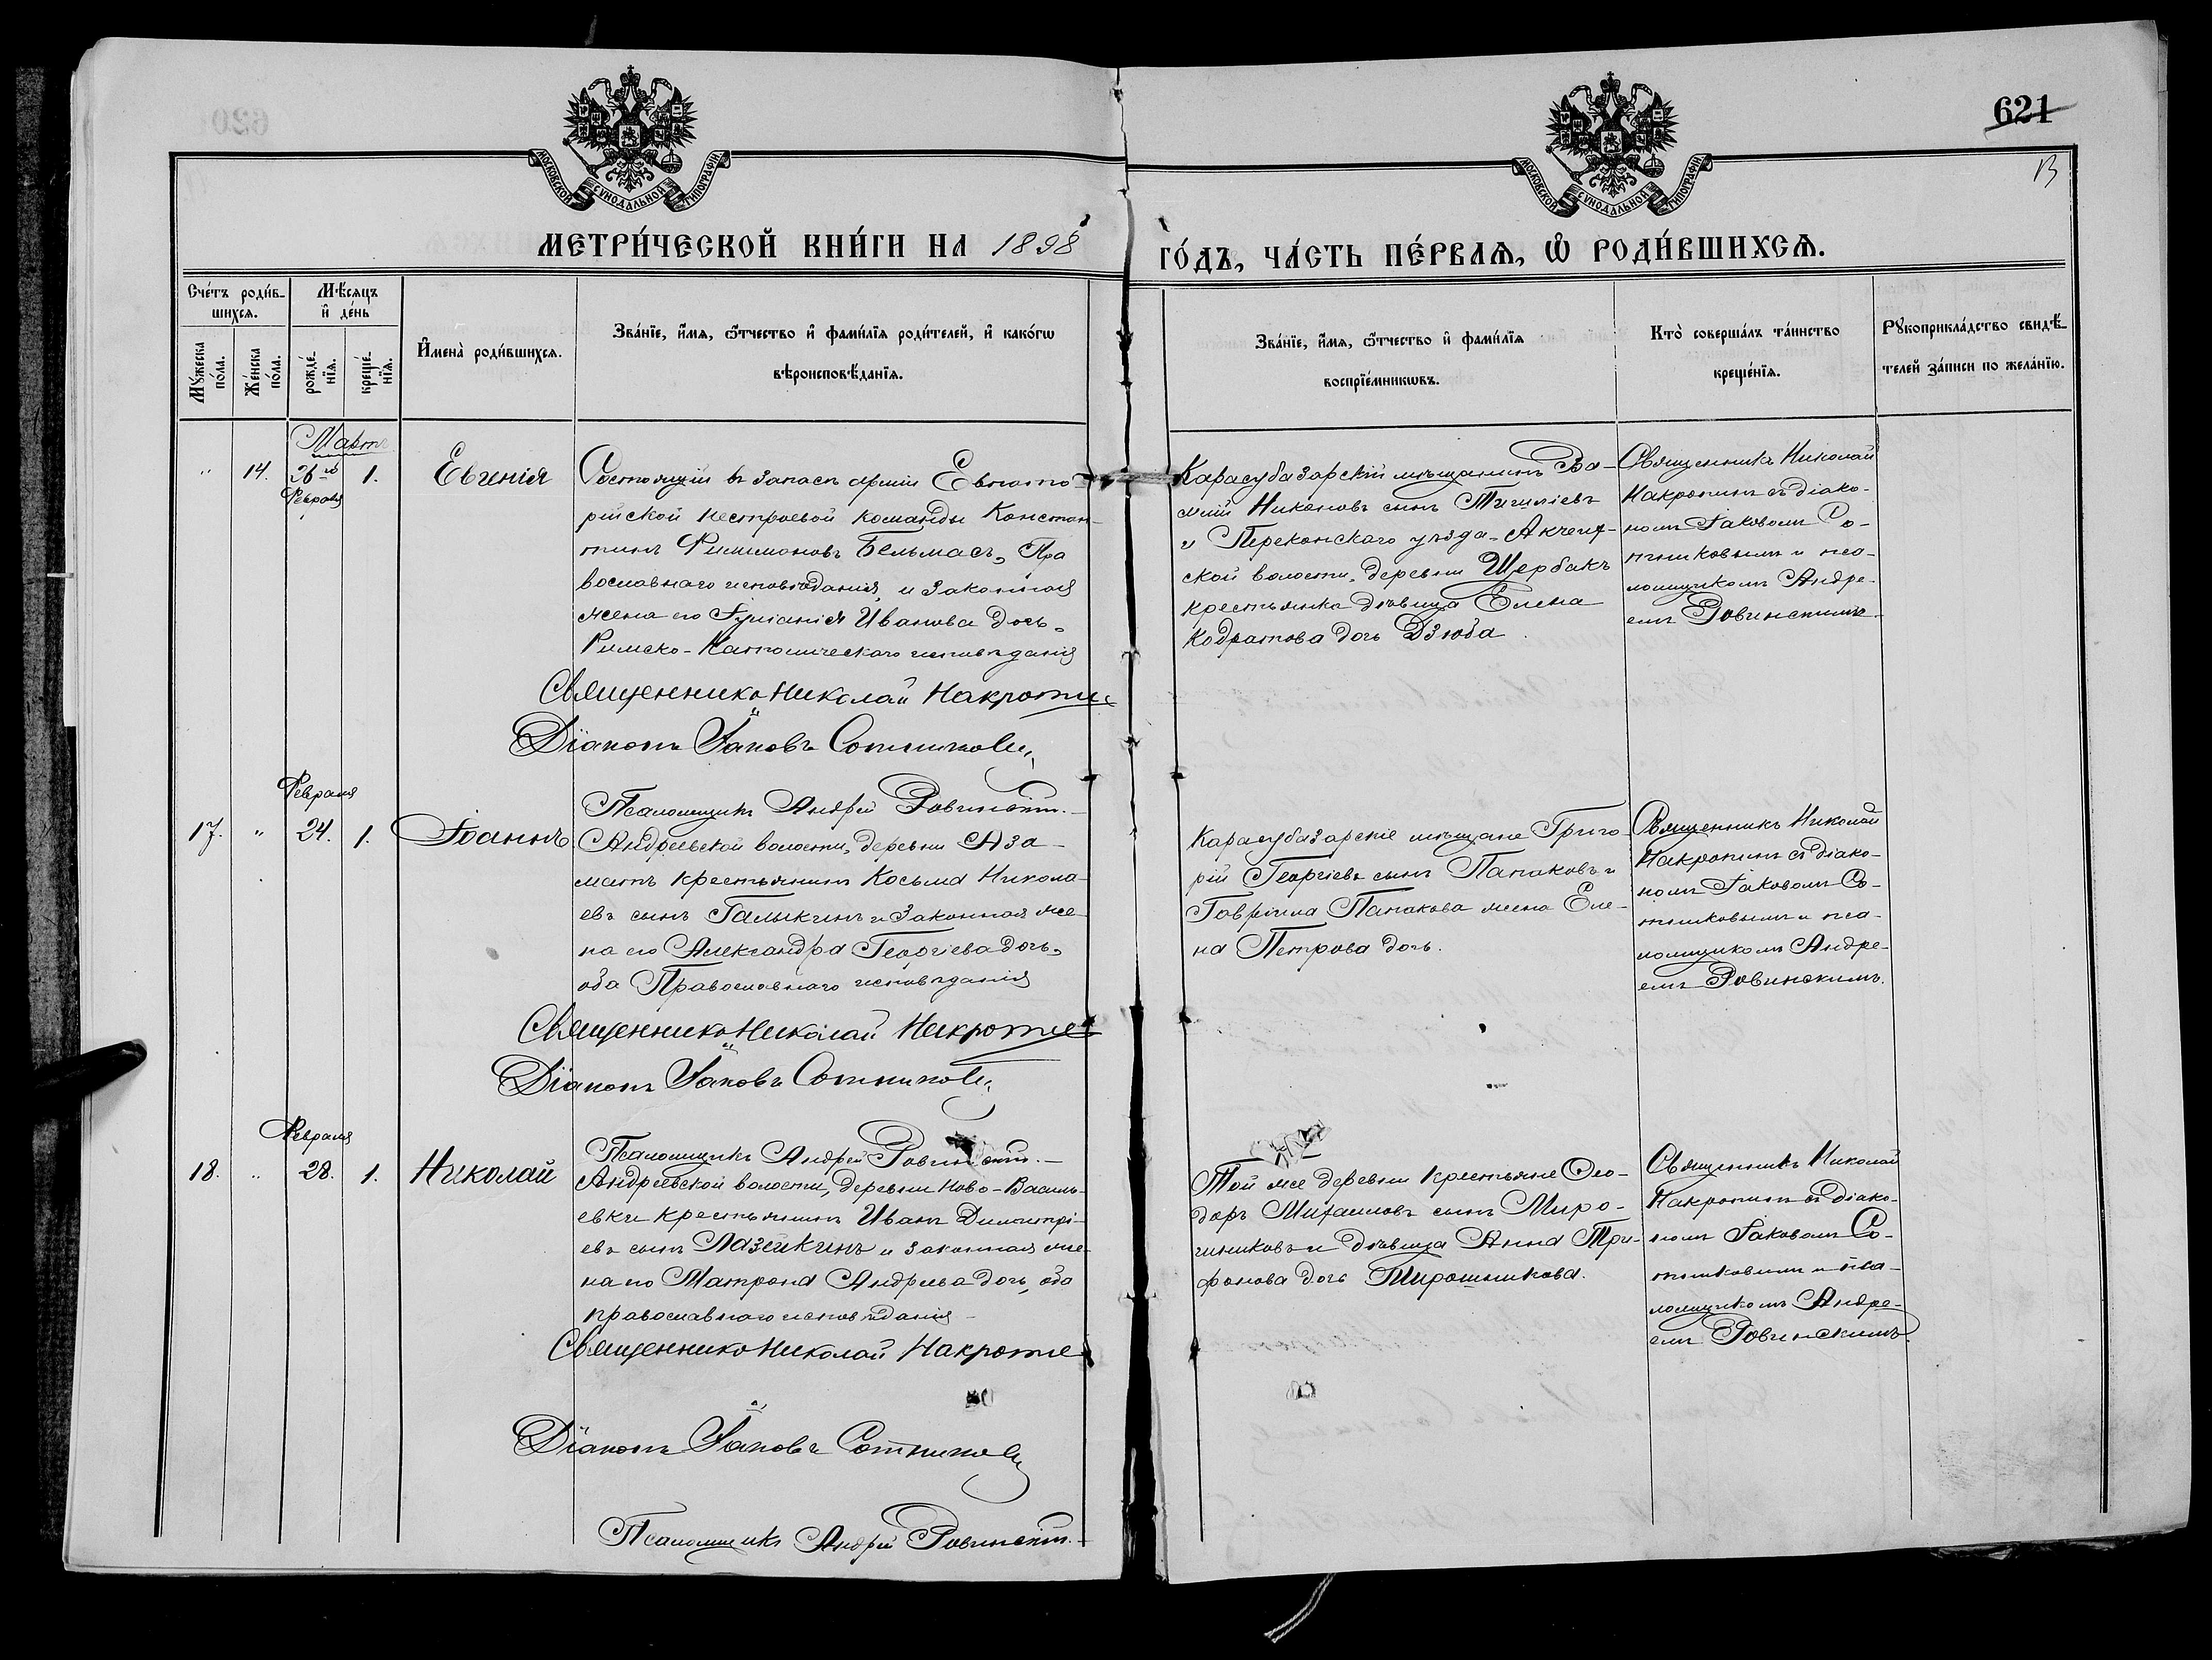 621
13
МОСКОВСКОЙ СѴНОДАЛЬНОЙ ТИПОГРАФІИ
МОСКОВСКОЙ СѴНОДАЛЬНОЙ ТИПОГРАФІИ
МЕТРИ́ЧЕСКОЙ КНИ́ГИ НА 1898
ГО́ДЪ, ЧА́СТЬ ПЕ́РВАѦ, Ѡ҆ РОДИ́ВШИХСѦ.
Сче́тъ роди́в-
шихсѧ.
Мѣ́сѧцъ
и҆ де́нь
Мꙋ́жеска
по́ла.
Же́нска
по́ла.
рожде́-
нїѧ.
креще́-
нїѧ.
И҆мена̀ роди́вшихсѧ.
Зва́нїе, и҆́мѧ, ѻ҆́тчество и҆ фами́лїѧ роди́телей, и҆ како́гѡ
вѣроисповѣ́данїѧ.
Зва́нїе, и҆́мѧ, ѻ҆́тчество и҆ фами́лїѧ
воспрїе́мникѡвъ.
Кто̀ соверша́лъ та́инство
креще́нїѧ.
Рꙋкоприкла́дство свидѣ́-
телей за́писи по жела́нїю.
Мартъ
" 14. 26 1. Евгенія
Февраля
Состоящій въ запасѣ арміи Евпато-
рійской нестроевой команды Констан-
тинъ Филимоновъ Бельмасъ, Пра
вославнаго исповѣданія, и законная
жена его Іуліанія Иванова дочь,
Римско-Католическаго исповѣданія
Священникъ Николай Накропин
Діаконъ Іаковъ Сотниковъ
Псаломщикъ Андрей Ровинскій.
Карасубазарскій мѣщанинъ
Никоновъ сынъ
и Перекопскаго уѣзда,
ской волости, деревни Щербакъ
крестьянка дѣвица Елена
Кодратова дочь Дзюба.
Священникъ Николай
Накропинъ съ діако-
номъ Іаковомъ Со-
тниковымъ и пса-
ломщикомъ Андре-
емъ Ровинскимъ.
Февраля
17. " 24. 1. Іоаннъ
Андреевской волости, деревни Аза-
матъ крестьянинъ Косьма Никола-
евъ сынъ Галыкинъ и законная же-
на его Александра Георгіева дочь,
оба Православнаго исповѣданія
Священникъ Николай Накропин
Діаконъ Іаковъ Сотниковъ
Псаломщикъ Андрей Ровинскій.
Карасубазарскіе мѣщане Григо-
рій Георгіевъ сынъ Папаковъ и
Гавріила Папакова жена Еле-
на Петрова дочь.
Священникъ Николай
Накропинъ съ діако-
номъ Іаковомъ Со-
тниковымъ и пса-
ломщикомъ Андре-
емъ Ровинскимъ.
Февраля
18. " 28. 1. Николай
Андреевской волости, деревни Ново-Василь-
евки крестьянинъ Иванъ Димитрі-
евъ сынъ Лазейкинъ и законная же-
на его Матрона Андреева дочь, оба
православнаго исповѣданія
Священникъ Николай Накропин
Діаконъ Іаковъ Сотниковъ
Псаломщикъ Андрей Ровинскій.
Той же деревни крестьяне Ѳео-
доръ Михаиловъ сынъ Миро-
шниковъ и дѣвица Анна Три-
фонова дочь Мирошникова.
Священникъ Николай
Накропинъ съ діако-
номъ Іаковомъ Со-
тниковымъ и пса-
ломщикомъ Андре-
емъ Ровинскимъ.